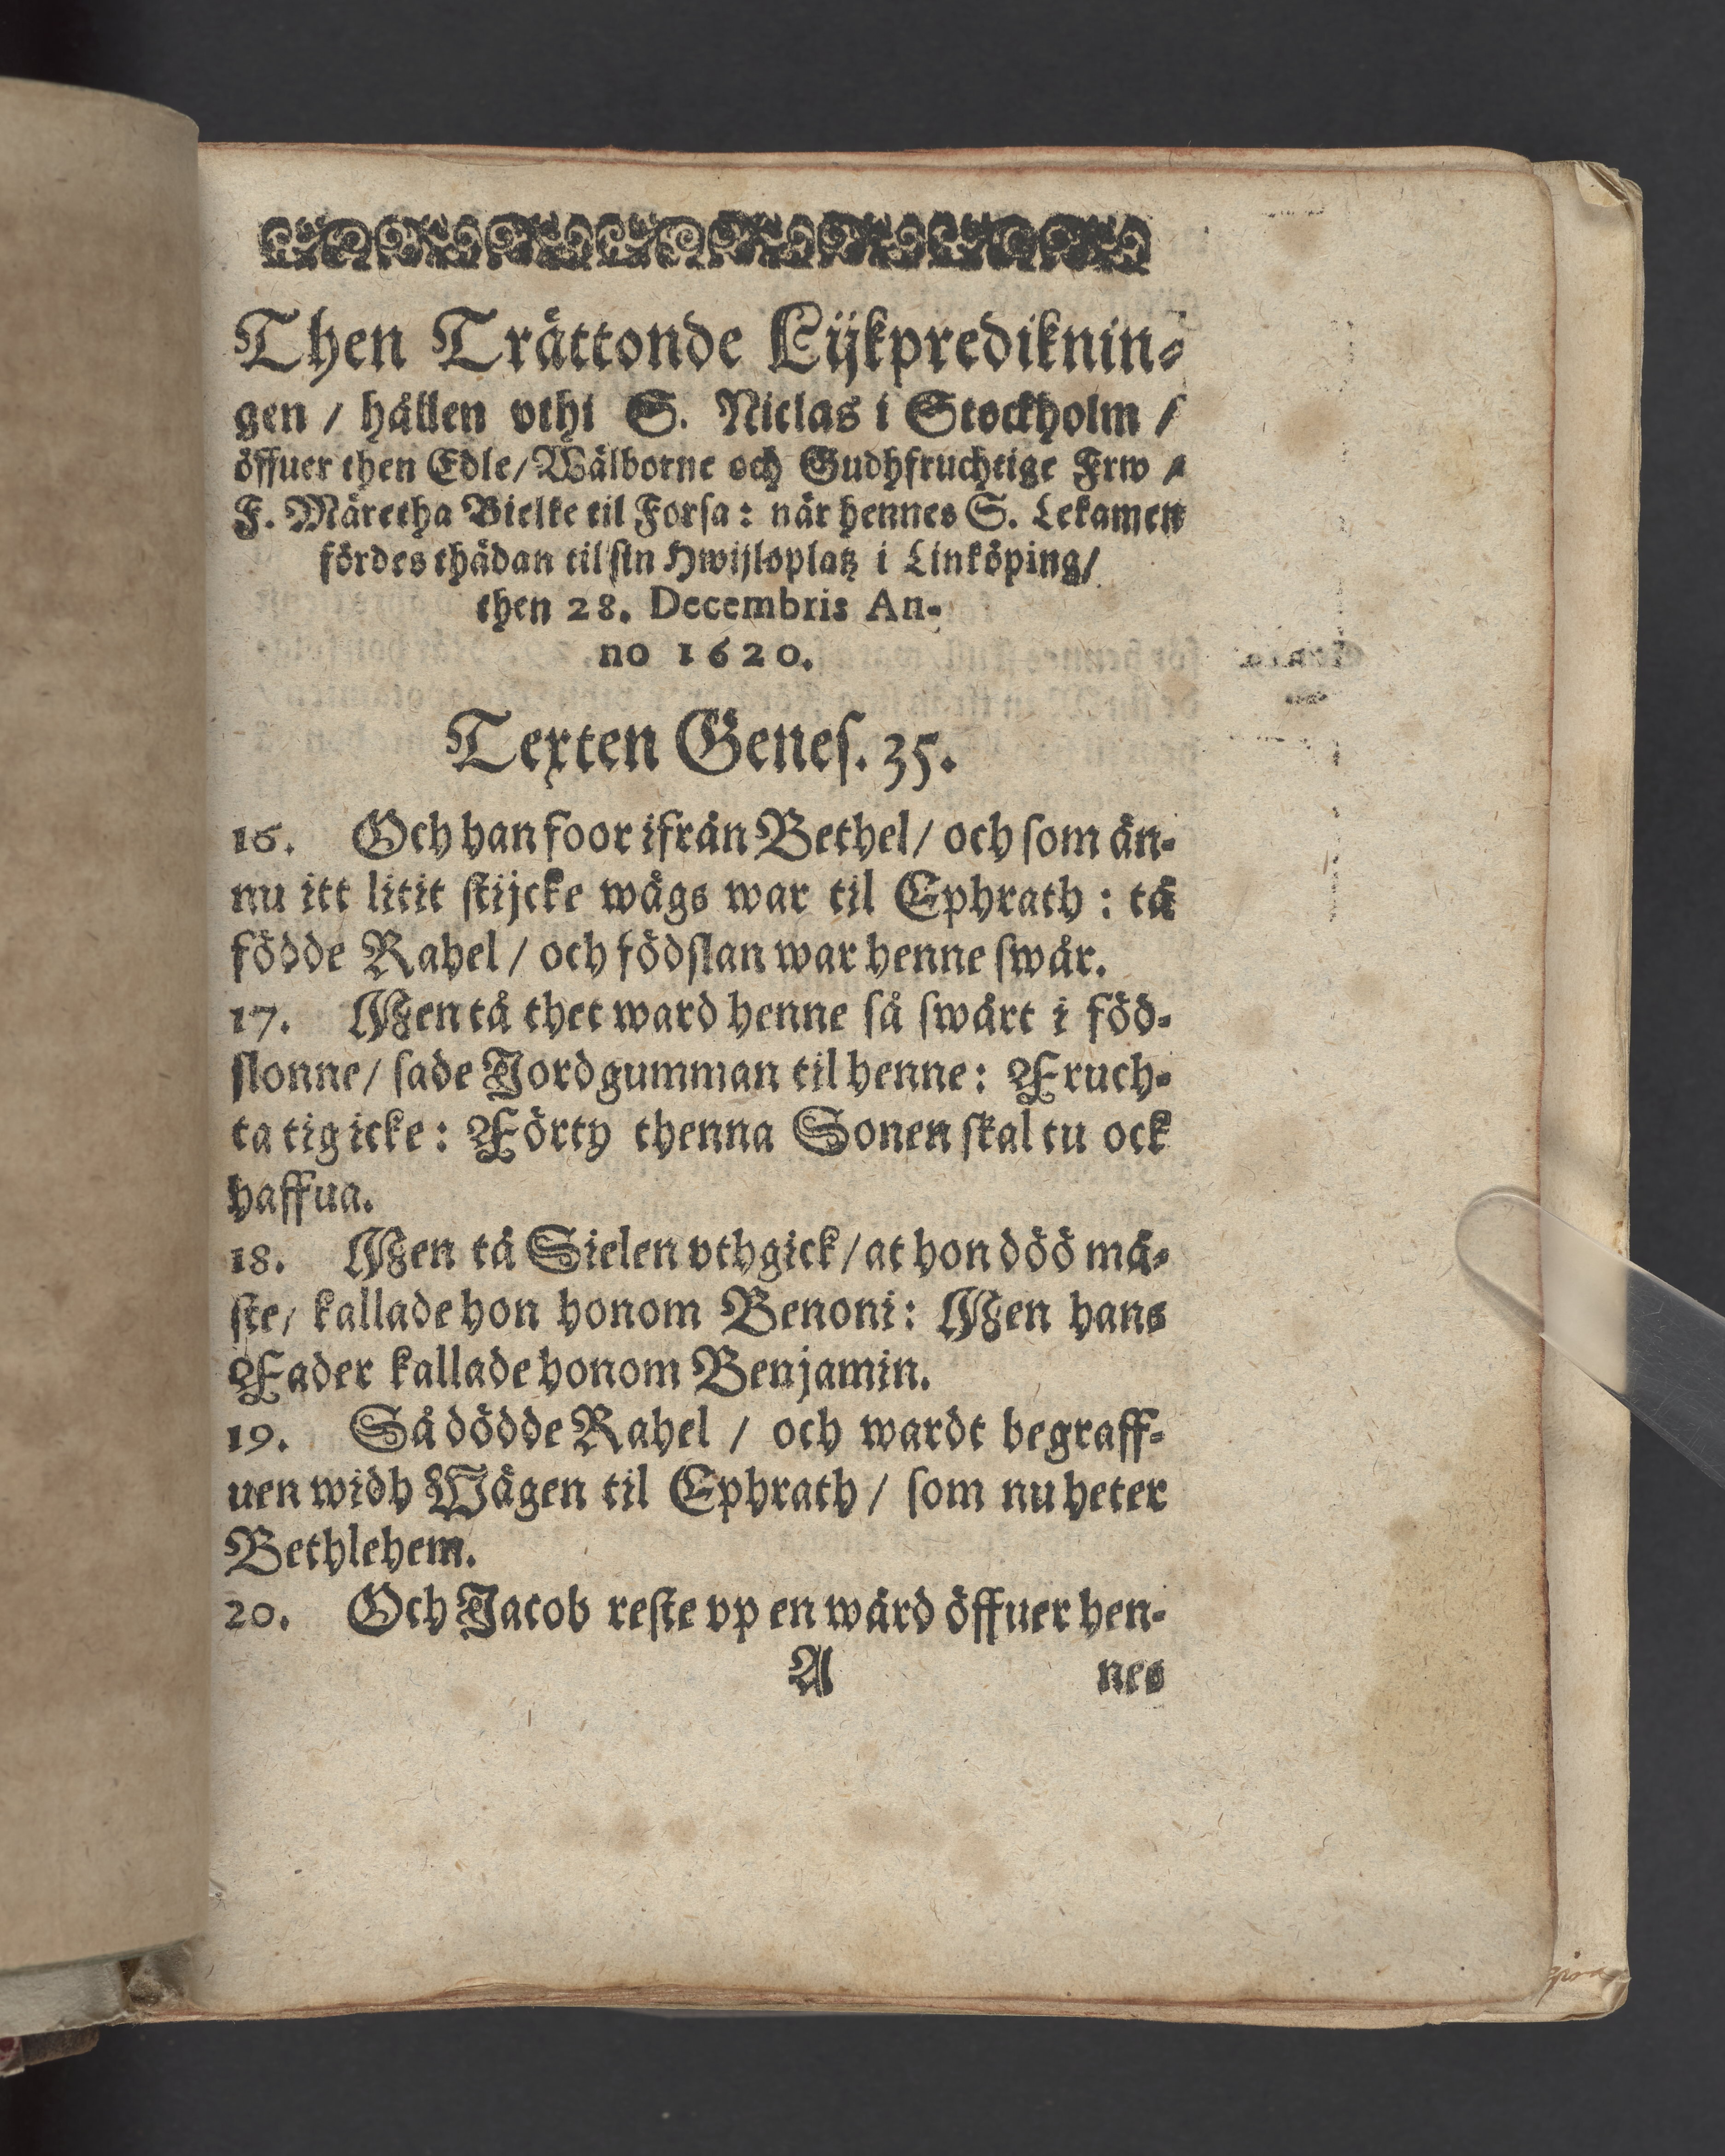 Then Trättonde Lijkprediknin-
gen / hållen vthi S. Niclas i Stockholm /
öffuer then Edle / Wälborne och Gudhfruchtige Frw /
F. Märetha Bielke til Forsa : när hennes S. Lekamen
fördes thädan til sin Hwijloplatz i Linköping /
then 28. Decembris An-
no 1620.
Texten Genes. 35.
16. Och han foor ifrån Bethel / och som än-
nu itt litit stijcke wägs war til Ephrath : tå
födde Rahel / och födslan war henne swår.
17. Men tå thet ward henne så swårt i föd-
slonne / sade Jordgumman til henne : Fruch-
ta tig icke : Förty thenna Sonen skal tu ock
haffua.
18. Men tå Sielen vthgick / at hon döö må-
ste / kallade hon honom Benoni : Men hans
Fader kallade honom Benjamin.
19. Så dödde Rahel / och wardt begraff-
uen widh Wägen til Ephrath / som nu heter
Bethlehem.
20. Och Jacob reste vp en wård öffuer hen-
A nes